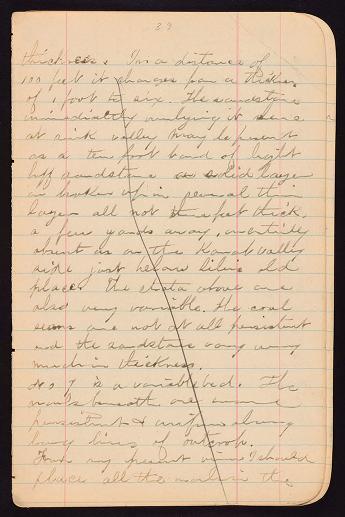 39
thickness. In a distance of
100 feet it changes from a thickness
of 1 foot to six. The sandstone
immediately underlying it here
at sink valley may be present
as a ten foot band of light
buff sandstone as solid layer
or broken up in several thin
layers all not three feet thick,
a few yards away, or entirely
absent as on the Kanab valley
side just below old
place. The strata above are
also very variable. The coal
seams are not at all persistent
and the sandstone vary very
much in thickness.
No 7 is a variable bed. The
marls beneath are more
persistent & uniform along
long lines of outcrop.
From my present view I should
place all the marls in the